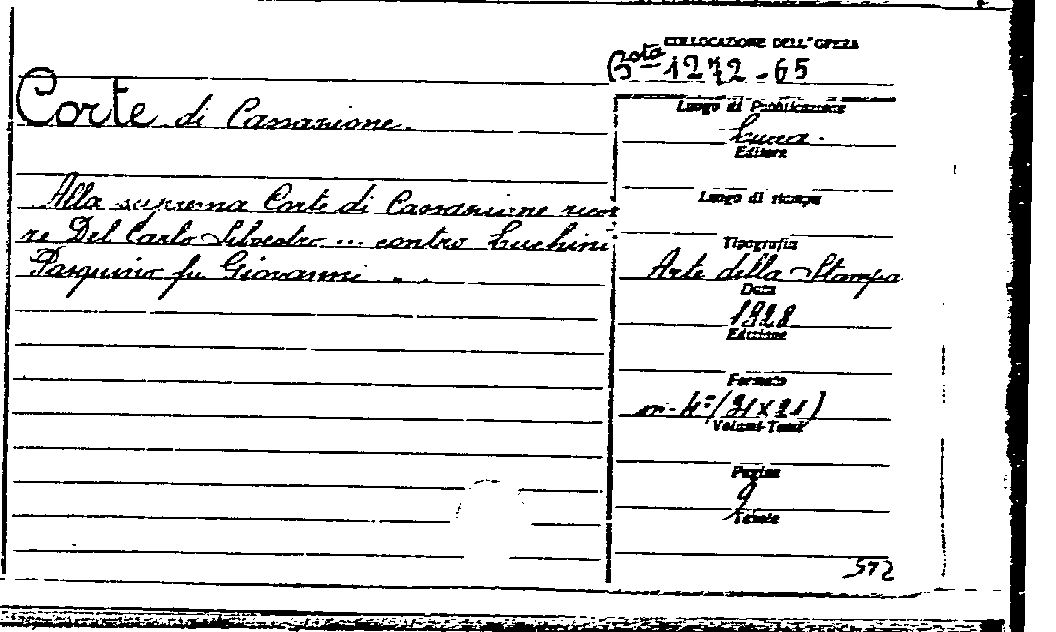 COLLOCAZIONE DELL'OPERA
Bta 1272-65
Corte di Cassazione.
Alla suprema Corte di Cassazione ricor
re Del Carlo Silvestro ... contro Luchini
Pasquino fu Giovanni . . .
Luogo di Pubblicazione
Lucca.
Editore
Luogo di stampa
Tipografia
Arte della Stampa
Data
1928
Edizione
Formato
m-4°(31x21)
Volumi-Tomi
Pagine
9
Tavole
572